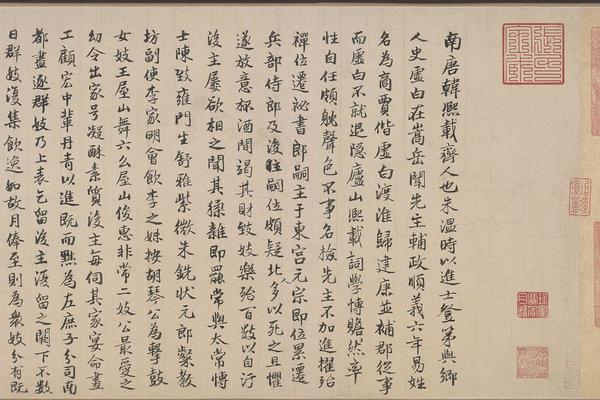 南唐韓熙載齊人也朱溫時以進士登第與鄉
人史虛白在嵩岳聞先主輔政順義六年易姓
名為商賈偕虛白渡淮歸建康並補郡從事
而虛白不就退隱廬山熙載詞學博贍然率
性自任頗躭聲色不事名檢先主不加進擢殆
禪位遷祕書郎嗣主于東宮元宗即位累遷
兵部侍郎及後主嗣位頗疑北人多以死之且懼
遂放意杯酒間竭其財致妓樂殆百數以自汙
後主屢欲相之聞其猱雜即罷常與太常博
士陳致雍門生舒雅紫微朱銑狀元郎粲教
坊副使李家明會飲李之妹按胡琴公為擊鼓
女妓王屋山舞六么屋山俊惠非常二妓公最愛之
幼令出家号凝酥素質後主每伺其家宴命畫
工顧宏中輩丹青以進既而黜為左庶子分司南
都盡逐群妓乃上表乞留後主復留之闕下不數
日群妓復集飲逸如故月俸至則為衆妓分有既